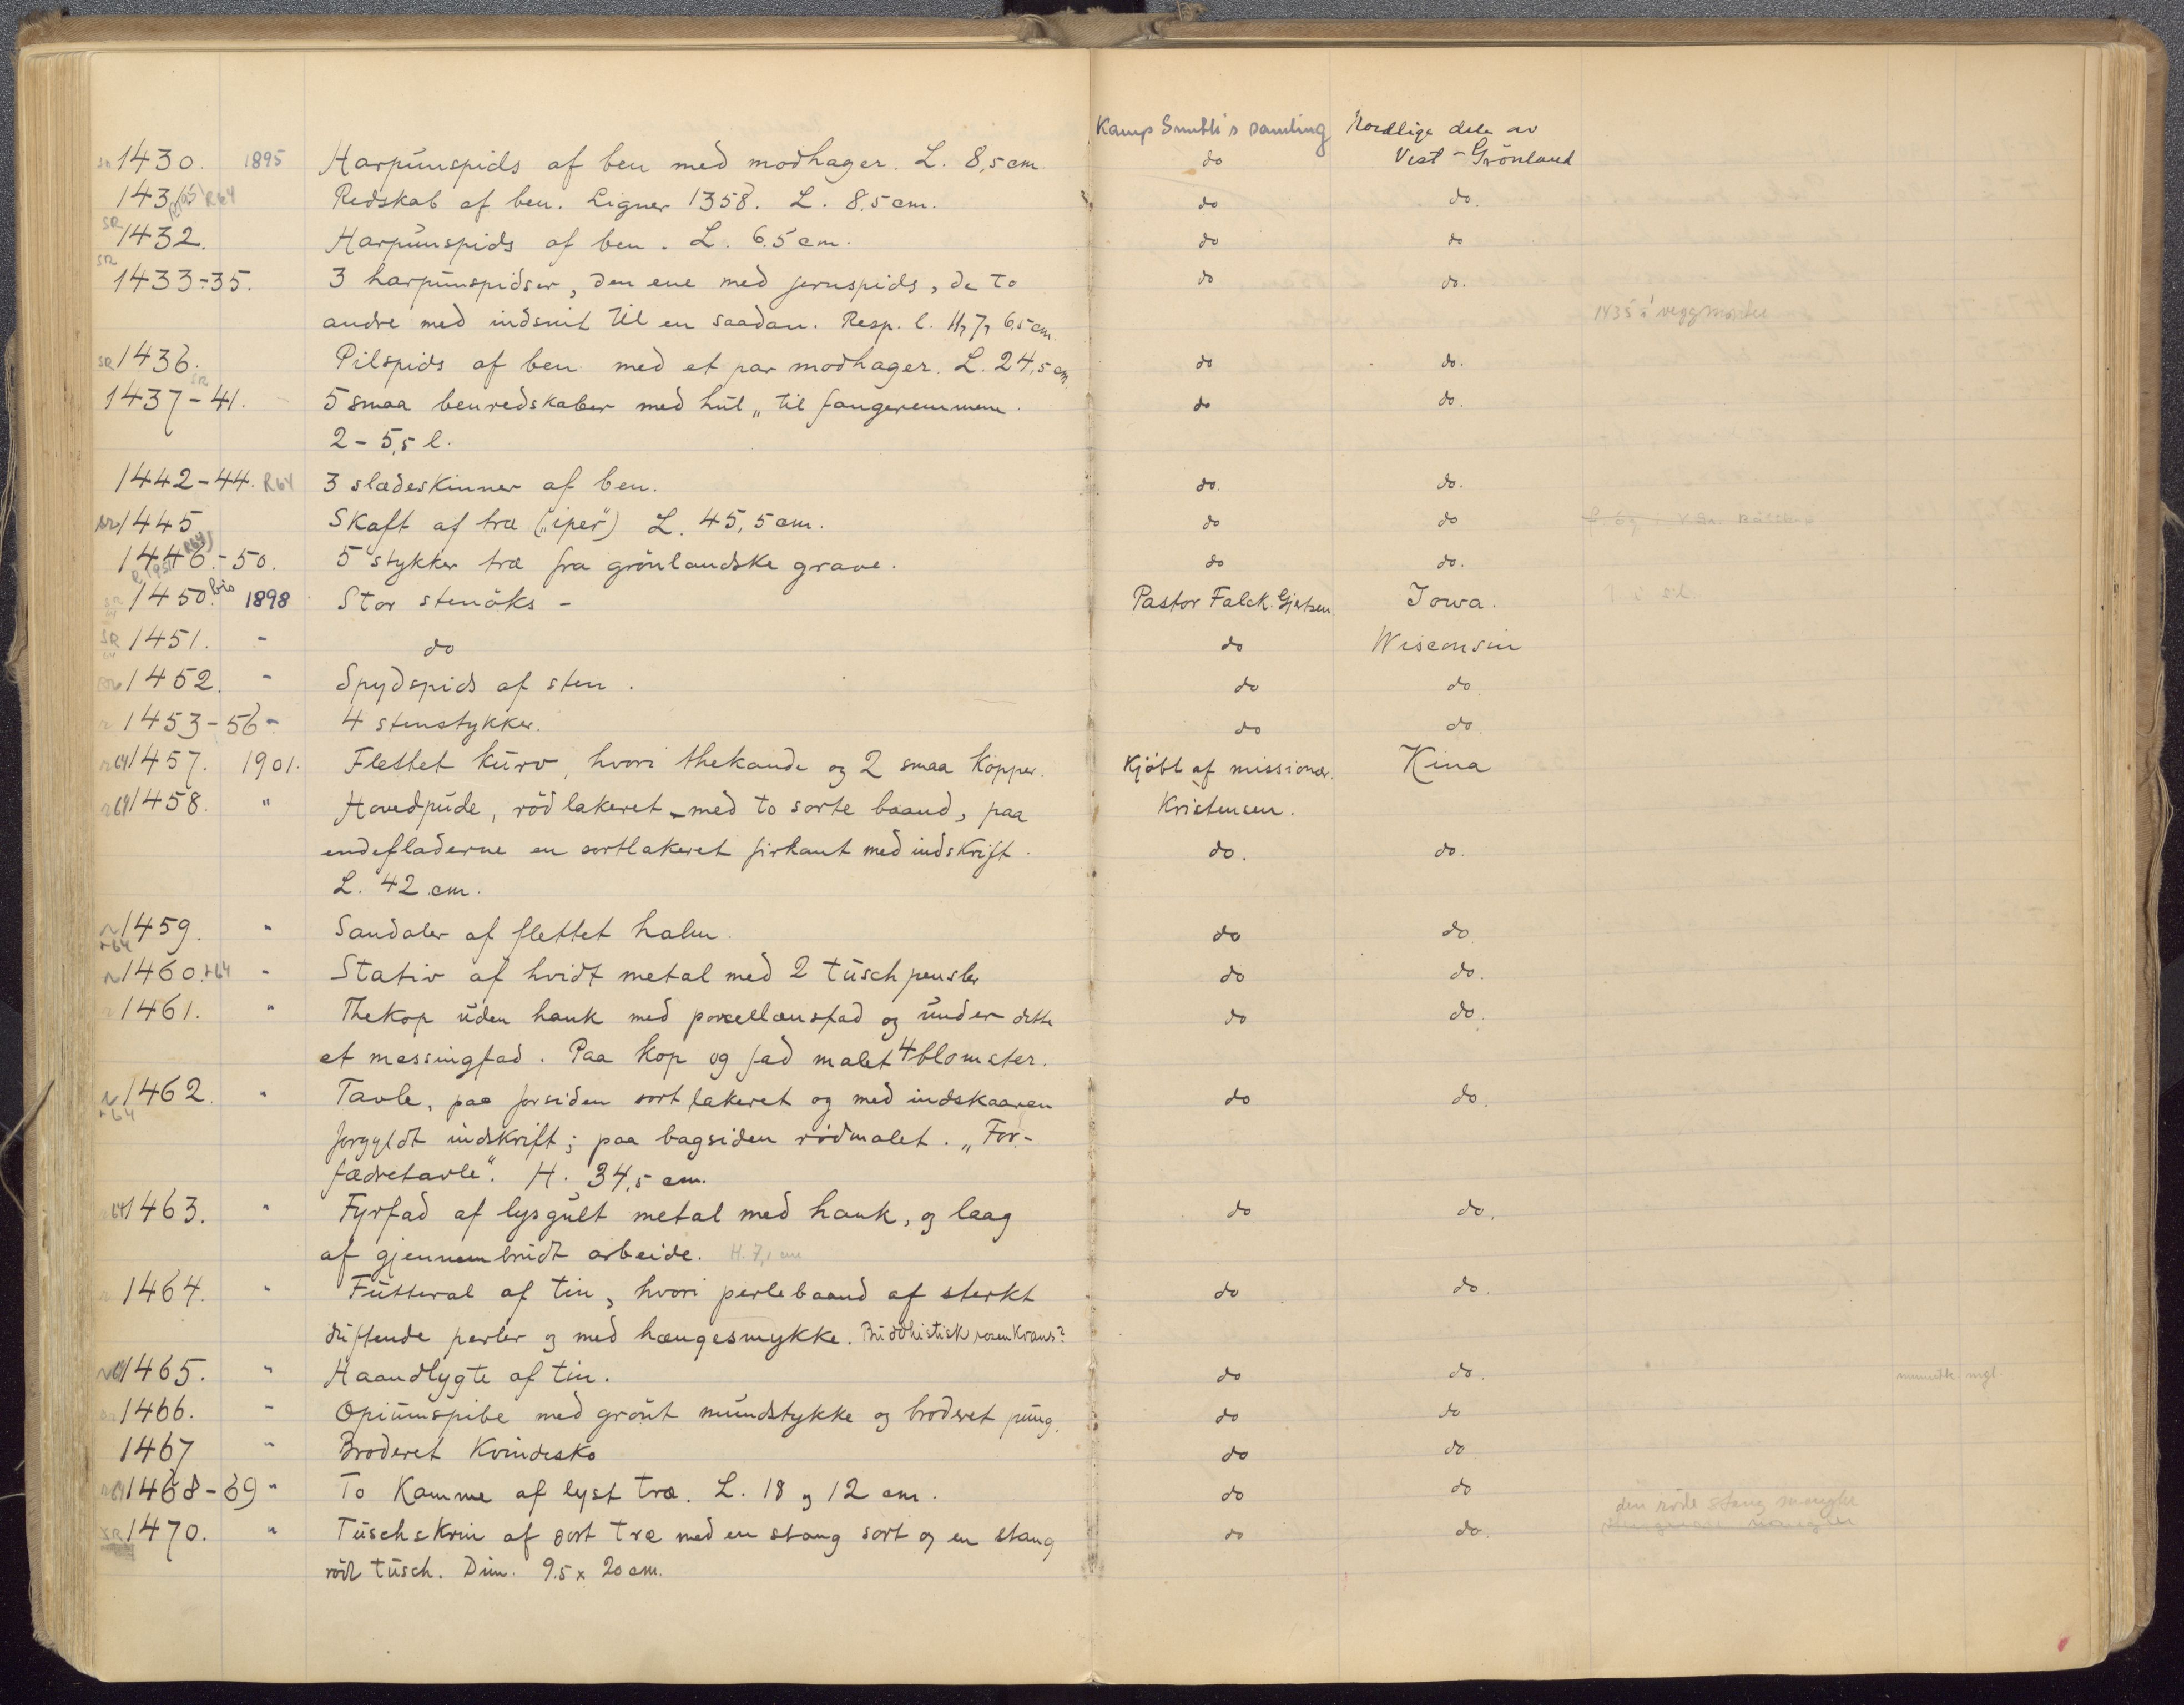 Kamp Smith's samling Nordlige dele av
1430. 1895 Harpunspids af ben med modhager. L. 8,5 cm. do Vest-Grönland
1431 R64 Redskab af ben. Ligner 1358. L. 8.5 cm. do do.
SR 1432. Harpunspids af ben. L. 6.5 cm. do do
SR 1433-35. 3 harpunspidser, den ene med jernspids, de to do do.
andre med indsnit til en saadan. Resp. l. 11, 7, 6.5 cm.
SR 1436. Pilspids af ben med et par modhager. L. 24,5 cm. do do.
1437-41. SR 5 smaa benredskaber med hul „til fangeremmene. do do.
2-5,5 l.
1442-44. R64 3 slædeskinner af ben. do. do.
1445 Skaft af træ („iper") L. 45,5 cm. do do
1446.-50. 5 stykker træ fra grönlandske grave. do do.
1450. bis 1898 Stor stenöks - Pastor Falck. Gjertsen Iowa.
SR 1451. - do do Wisconsin
1452. - Spydspids af sten. do do.
1453-56 - 4 stenstykker. do do.
1457. 1901. Flettet kurv, hvori thekande og 2 smaa kopper. Kjöbt af missionær. Kina
1458. " Hovedpude, röd lakeret - med to sorte baand, paa Kristensen.
endefladerne en sortlakeret firkant med indskrift. do. do.
L. 42 cm.
1459. " Sandaler af flettet halm. do do
1460. r64 - Stativ af hvidt metal med 2 tuschpensler do do.
1461. " Thekop uden hank med porcellænsfad og under dette do do.
et messingfad. Paa kop og fad malet 4 blomster.
1462. " Tavle, paa forsiden sortlakeret og med indskaaren do do.
forgyldt indskrift; paa bagsiden rödmalet. „For-
fædretavle". H. 34,5 cm.
1463. " Fyrfad af lysgult metal med hank, og laag do do.
af gjennembrudt arbeide. H. 7,1 cm
1464. " Futteral af tin, hvori perlebaand af sterkt do do.
duftende perler og med hængesmykke. Buddhistisk rosenkrans?
1465. " Haandlygte af tin. do do.
1466. - Opiumspibe med grönt mundstykke og broderet pung. do do
1467 " Broderet Kvindesko do do
1468-69 " To Kamme af lyst træ. L. 18 og 12 cm. do do
SR 1470. " Tuschskrin af sort træ med en stang sort og en stang do do. den röde stang mangler
rödt tusch. Dim. 9.5 x 20 cm.